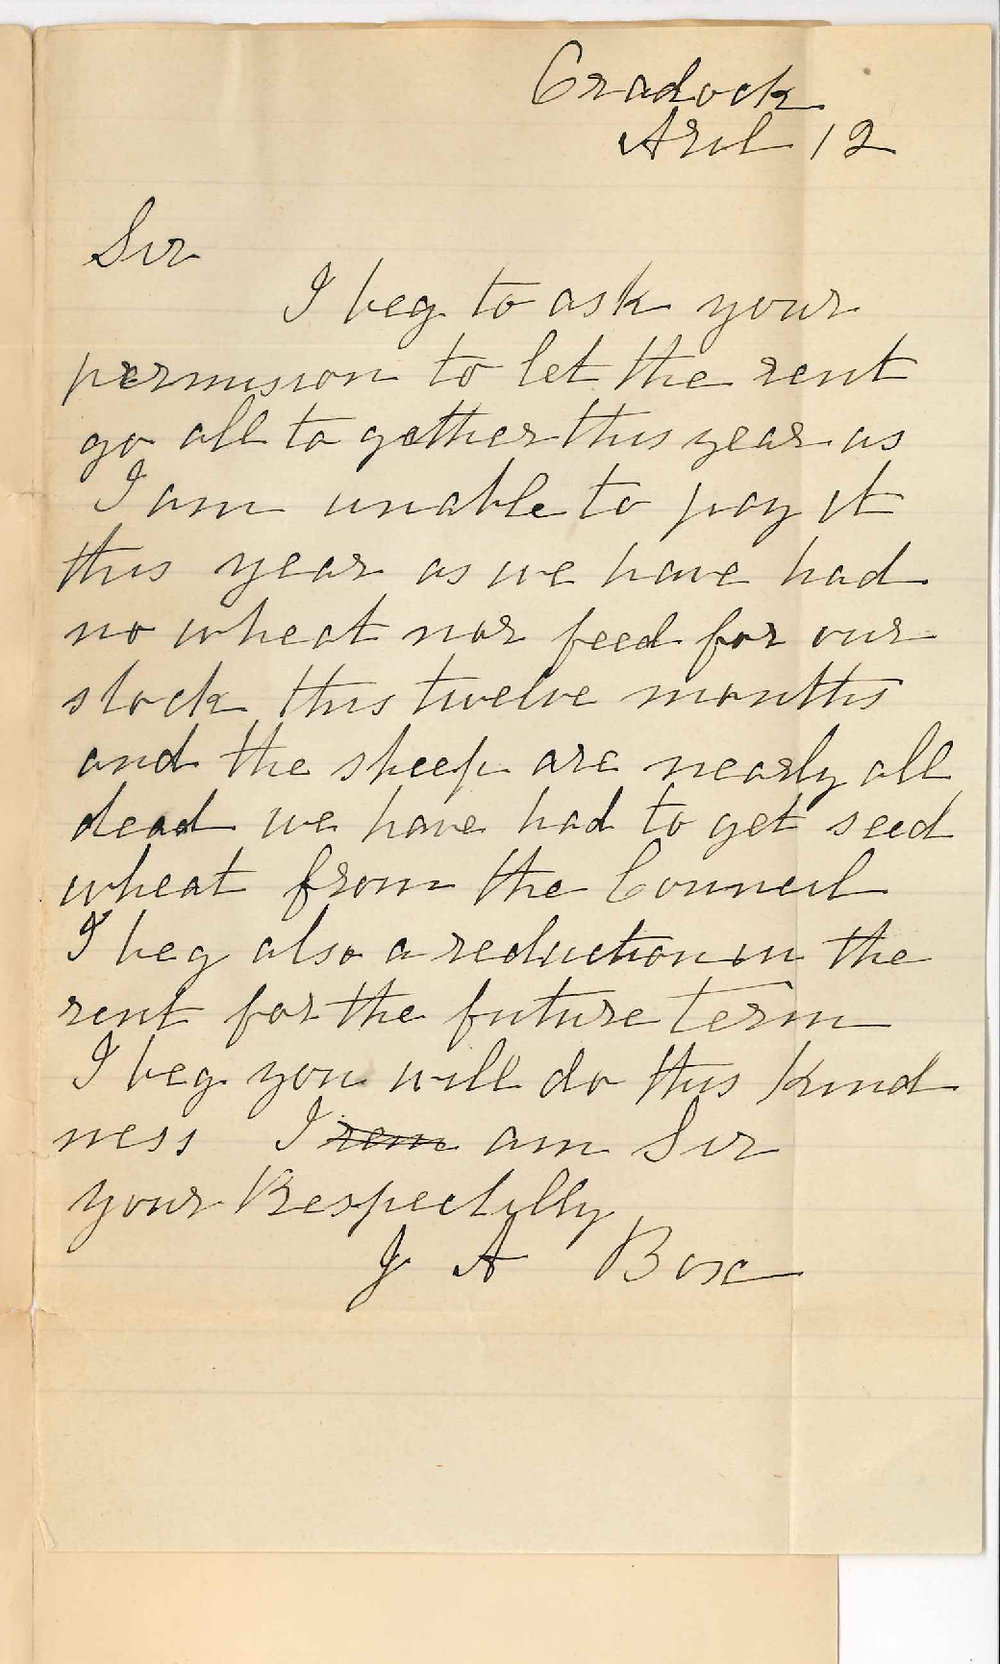 Cradock
Aril 12
Sir
I beg to ask your
permision to let the rent
go all to gether this year as
I am unable to pay it
this year as we have had
no wheat nor feed for our
stock this twelve months
and the sheep are nearly all
dead we have had to get seed
wheat from the Council
I beg also a reduction in the
rent for the future term
I beg you will do this kind
ness I rem am Sir
your Respectilly
J A